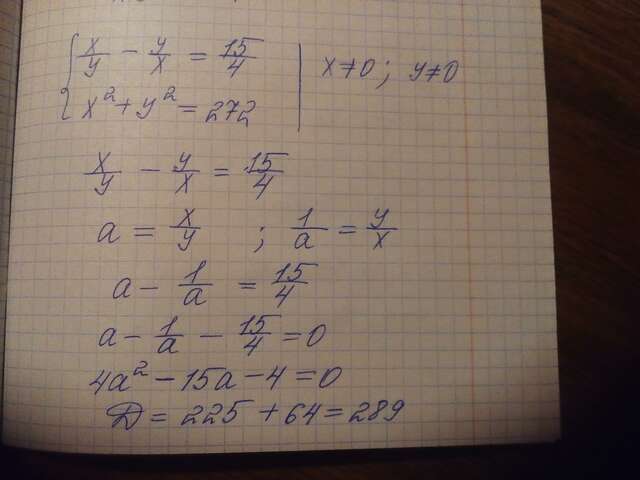 { x/y - y/x = 15/4 | x≠0; y≠0
x² + y² = 272
x/y - y/x = 15/4
a = x/y ; 1/a = y/x
a - 1/a = 15/4
a - 1/a - 15/4 = 0
4a² - 15a - 4 = 0
D = 225 + 64 = 289